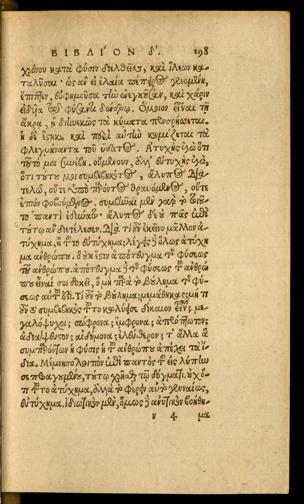 ΒΙΒΛΙΟΝ δ. 198
χρόνου κατὰ φύσιν διελθεῖν, καὶ ἵλεων κα-
ταλῦσαι· ὡς ἂν εἰ ἐλαία πέπειρος γενομένη,
ἔπιπτεν, εὐφημοῦσα τὴν ἐνεγκοῦσαν, καὶ χάριν
εἰδυῖα τῷ φύσαντι δένδρῳ. Ὅμοιον εἶναι τῇ
ἄκρᾳ, ᾗ διηνεκῶς τὰ κύματα προσρήσσεται.
ἡ δὲ ἕστηκε καὶ περὶ αὐτὴν κοιμίζεται τὰ
φλεγμήναντα τοῦ ὕδατος. Ἀτυχὴς ἐγὼ ὅτι
τοῦτό μοι συνέβη. οὐμενουν, ἀλλ' εὐτυχὴς ἐγὼ,
ὅτι τούτου μοι συμβεβηκότος, ἄλυπος δια-
τελῶ, οὔτε ὑπὸ παρόντος θραυόμενος, οὔτε
ἐπιὸν φοβούμενος. συμβῆναι μὲν γὰρ τὸ τοιοῦ-
το παντὶ ἐδύνατο· ἄλυπος δὲ οὐ πᾶς ἐπὶ
τούτῳ ἂν διετέλεσεν. Διὰ τί οὖν ἐκεῖνο μᾶλλον ἀ-
τύχημα, ἢ τοῦτο εὐτύχημα; λέγεις δὲ ὅλως ἀτύχη-
μα ἀνθρώπου, ὃ οὐκ ἔστιν ἀπότευγμα τῆς φύσεως
τοῦ ἀνθρώπου. ἀπότευγμα δὲ τῆς φύσεως τοῦ ἀνθρώ-
που εἶναί σοι δοκεῖ, ὃ μὴ παρὰ τὸ βούλημα τῆς φύ-
σεως αὐτοῦ ἐστι. Τί οὖν τὸ βούλημα; μεμάθηκας; μή τι
οὖν τὸ συμβεβηκὸς τοῦτο κωλύσει δίκαιον εἶναι; με-
γαλόψυχον; σώφρονα; ἔμφρονα; ἀπρόπτωτον;
ἀδιάψευστον; αἰδήμονα; ἐλεύθερον; τ' ἄλλα ὧ
συμπαρόντων ἡ φύσις ἡ τοῦ ἀνθρώπου ἀπέχει τὰ ἴ-
δια. Μέμνησο λοιπὸν ἐπὶ παντὸς τοῦ εἰς λύπην
σε προαγομένου, τούτῳ χρῆσθαι τῷ δόγματι. οὐχ ὅ-
τι τοῦτο ἀτύχημα, ἀλλὰ τὸ φέρειν αὐτὸ γενναίως,
εὐτύχημα. Ἰδιωτικὸν μὲν, ὅμως δὲ ἀνυτικὸν βοήθη-
ν 4 μα